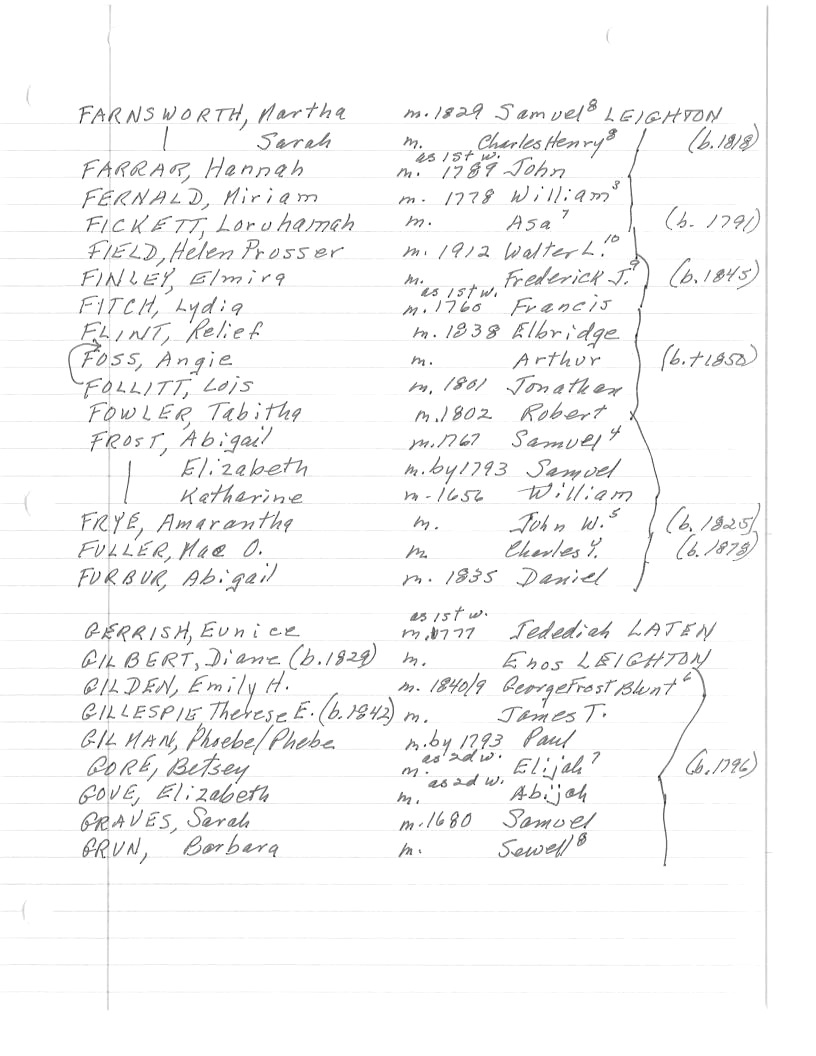 FARNSWORTH, Martha m. 1829 Samuel⁸ LEIGHTON
| Sarah m. Charles Henry⁸ (b. 1818)
as 1st w.
FARRAR, Hannah m. 1789 John
FERNALD, Miriam m. 1778 William³
FICKETT, Loruhamah m. Asa⁷ (b. 1791)
FIELD, Helen Prosser m. 1912 Walter L.¹⁰
FINLEY, Elmira m. Frederick J.⁹ (b. 1845)
as 1st w.
FITCH, Lydia m. 1760 Francis
FLINT, Relief m. 1838 Elbridge
FOSS, Angie m. Arthur (b. +1850)
FOLLITT, Lois m. 1801 Jonathan
FOWLER, Tabitha m. 1802 Robert
FROST, Abigail m. 1767 Samuel⁴
Elizabeth m. by 1793 Samuel
| Katharine m. 1656 William
FRYE, Amarantha m. John W.⁵ (b. 1825)
FULLER, Mae O. m. Charles Y. (b. 1878)
FURBUR, Abigail m. 1835 Daniel
as 1st w.
GERRISH, Eunice m. 1777 Jedediah LATEN
GILBERT, Diane (b. 1829) m. Enos LEIGHTON
GILDEN, Emily H. m. 1840/9 George Frost Blunt⁶
GILLESPIE, Therese E. (b. 1842) m. James T.
GILMAN, Phoebe/Phebe m. by 1793 Paul
as 2d w.
GORE, Betsey m. Elijah⁷ (b. 1796)
as 2d w.
GOVE, Elizabeth m. Abijah
GRAVES, Sarah m. 1680 Samuel
GRUN, Barbara m. Sewell⁸